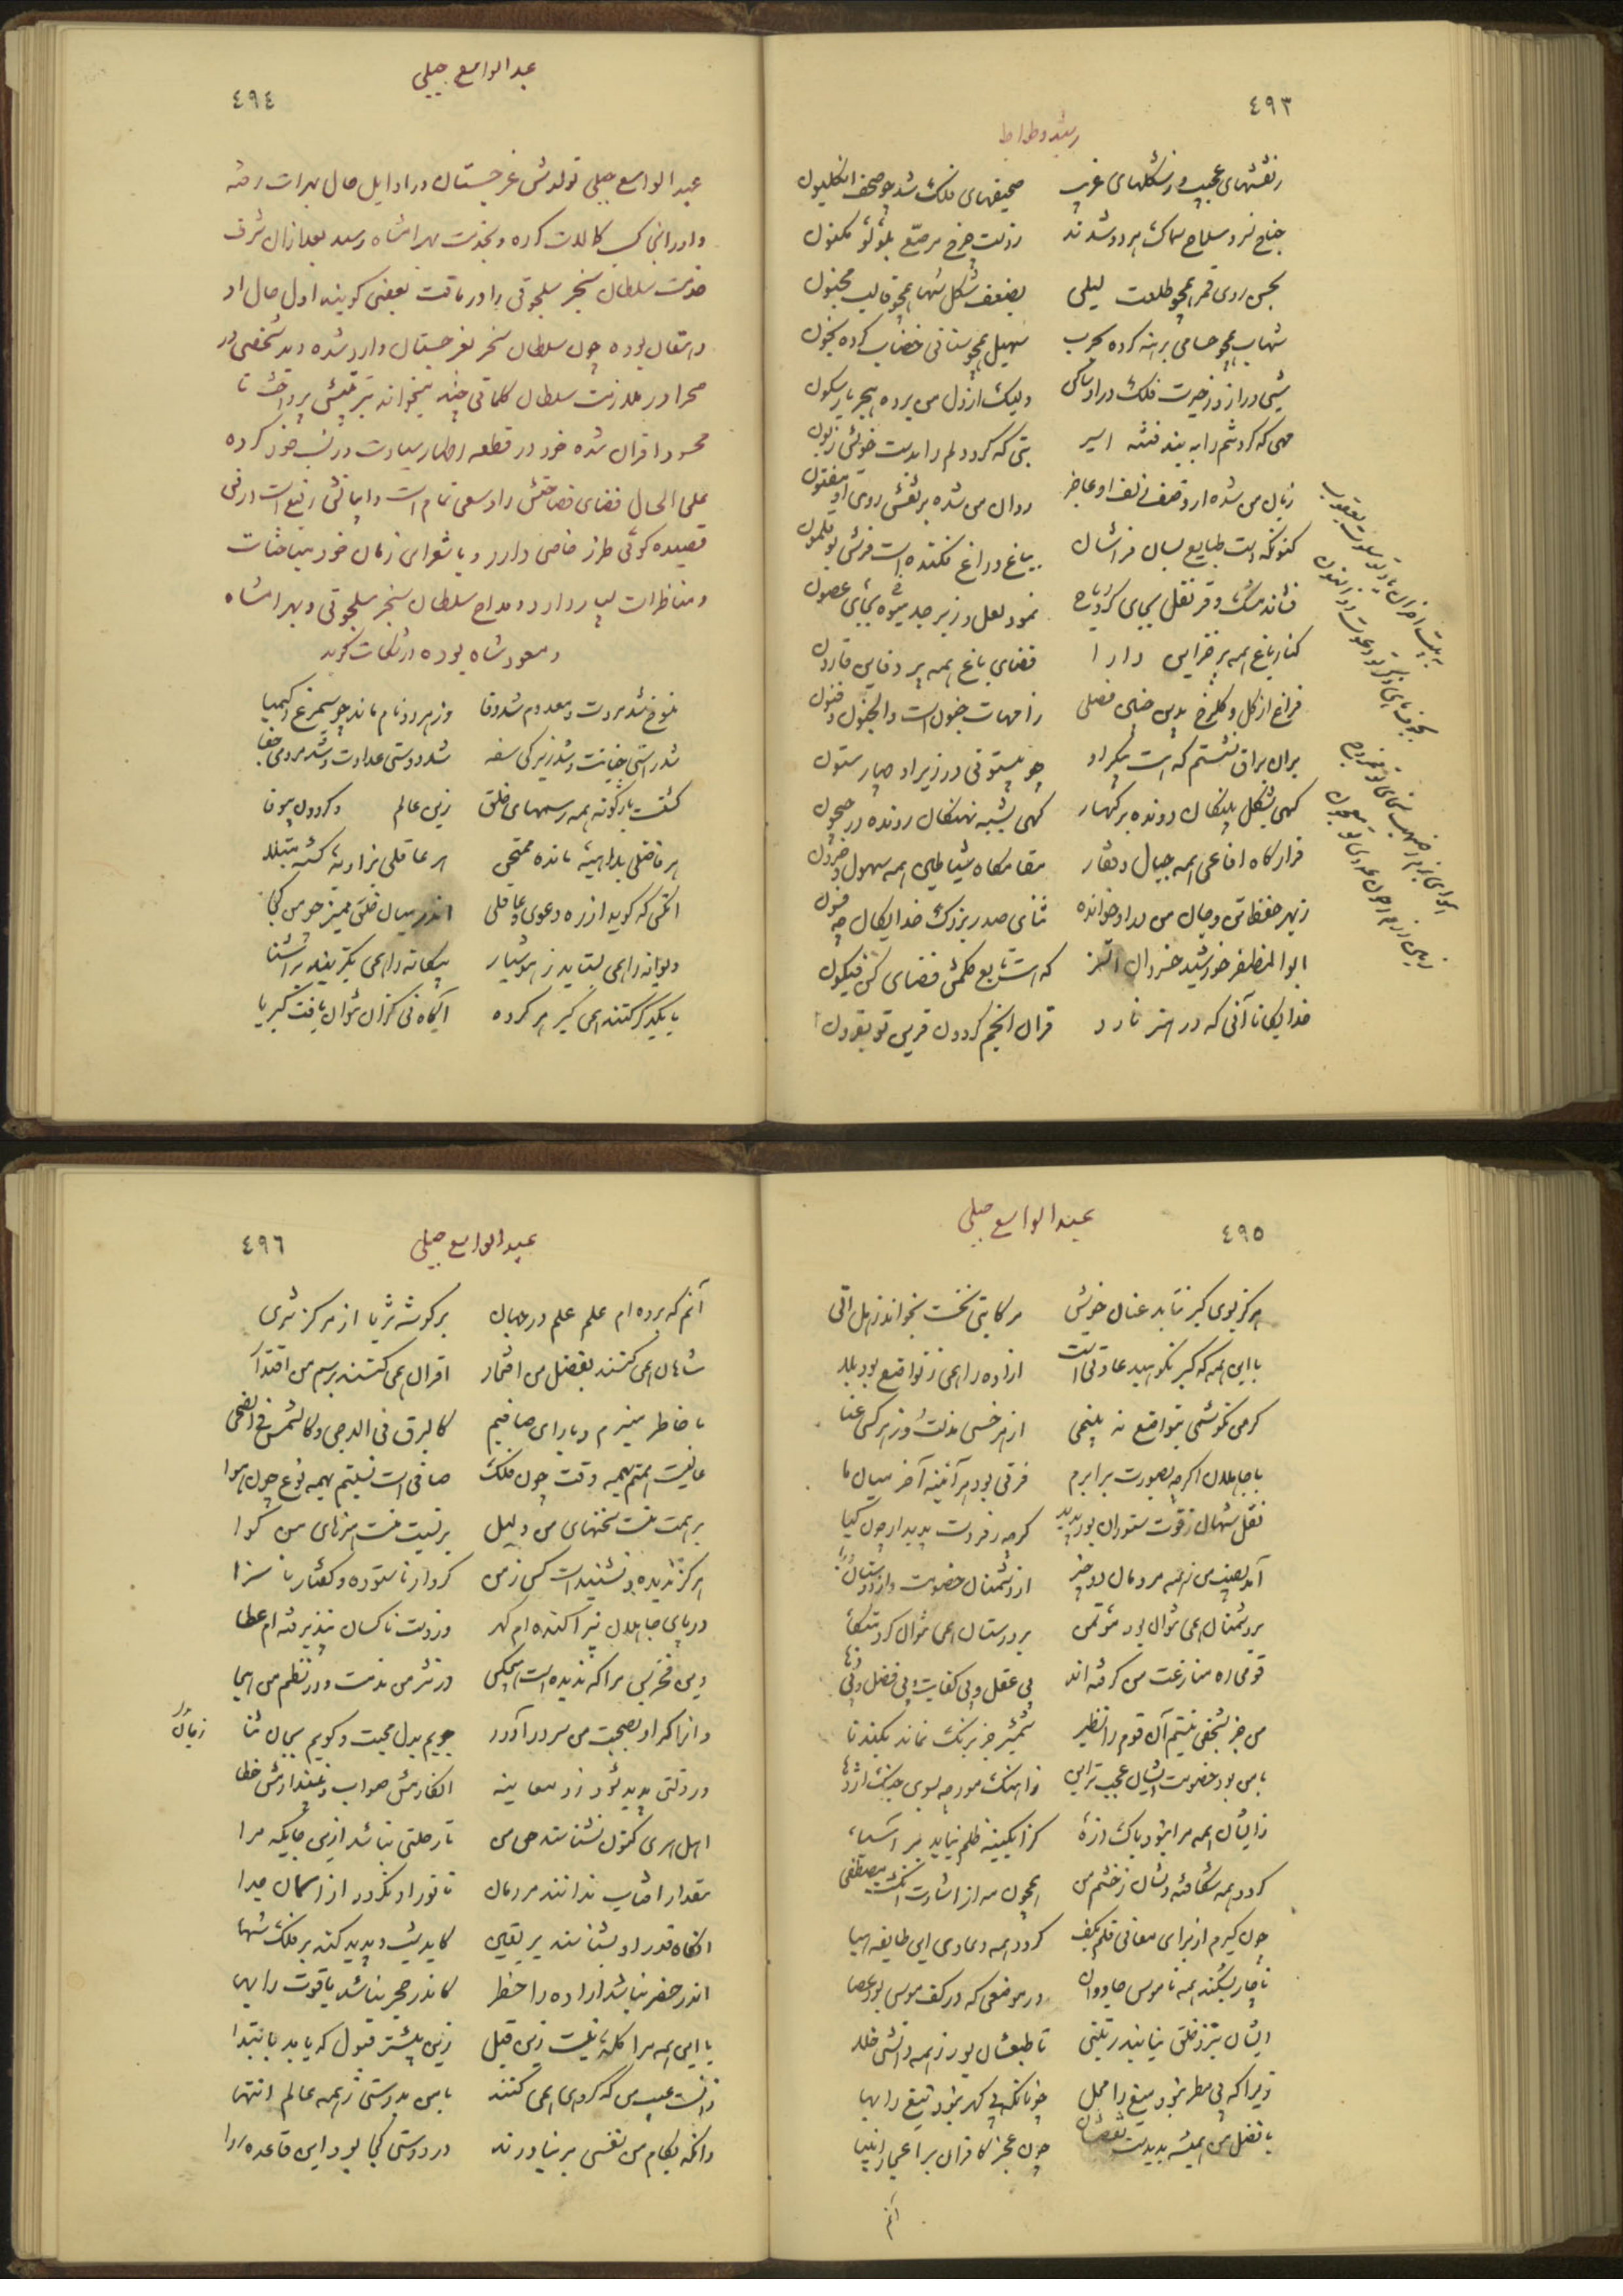 ٤٩٣
رشید وطواط
ز نقشهای عجیب و ز شکلهای غریب صحیفهای فلک شد چو صحف انکلیون
جناح نسر و سلاح سماک هر دو شدند ز دست چرخ مرصع بلؤلؤ مکنون
بحسن روی قمر همچو طلعت لیلی بضعف شکل سها همچو قالب مجنون
شهاب همچو حسامی برهنه کرده بحرب سهیل همچو سنانی خضاب کرده بخون
شبی دراز و ز حیرت فلک در او ساکن ولیک از دل من برده هجر یار سکون
مهی که کرد تنم را به بند فتنه اسیر بتی که کرد دلم را بدست خویش زبون
زبان من شده از وصف زلف او عاجز روان من شده بر نقش روی او مفتون
کنونکه است طبایع بسان فراشان بباغ و راغ فکنده است فرش بوقلمون
فشانده مشک و قرنفل بجای گرد ریاح نموده لعل و زبرجد بجای میوه غصون
کنار باغ همه پر خزاین دارا فضای باغ همه پر دفاین قارون
فراغ از گل و گلرخ بدین چنین فصلی ز امهات جنون است والجنون فنون
بران براق نشستم که است پیکر او چو بیستونی در زیر او چهار ستون
گهی بشکل پلنگان دونده بر کهسار گهی بشبه نهنگان رونده در جیحون
قرارگاه افاعی همه جبال و قفار مقامگاه شیاطین همه سهول و حزون
ز بهر حفظ تن و جان من بدو خوانده ثنای صدر بزرگ خدایگان چه فسون
ابوالمظفر خورشید خسروان اتسز که است تابع حکمش قضای کن فیکون
خدایگانا آنی که در هنر نارد قران انجم گردون قرین تو بقرون
٤٩٤
عبدالواسع جبلی
عبدالواسع جبلی تولدش غرجستان در اوایل حال بهرات رفته
و در آنجا کسب کمالات کرده و بخدمت بهرامشاه رسید بعد از آن شرف
خدمت سلطان سنجر سلجوقی را دریافت بعضی گویند اول حال او
دهقان بوده چون سلطان سنجر بغرجستان وارد شده دید شخصی در
صحرا در ملازمت سلطان کلماتی چند میخواند بتربیتش پرداخت تا
محسود اقران شده خود در قطعه اظهار سیادت در نسب خود کرده
علی الحال فضای فصاحتش را وسعی تمام است و ابیاتش رفیع است در فن
قصیده گوئی طرز خاصی دارد و با شعرای زمان خود مباحثات
و مناظرات بسیار دارد و مداح سلطان سنجر سلجوقی و بهرامشاه
و مسعود شاه بوده در شکایت گوید
منسوخ شد مروت و معدوم شد وفا وز هر دو نام ماند چو سیمرغ و کیمیا
شد راستی خیانت و شد زیرکی سفه شد دوستی عداوت و شد مردمی جفا
گشتست باژگونه همه رسمهای خلق زین عالم و گردون بیوفا
هر فاضلی بداهیه مانده ممتحن هر عاقلی بزاویه گشته مبتلا
آنکس که گوید از ره دعوی و عاقلی اندر میان خلق ممیز چو من کجا
دیوانه را همی بشناسد ز هوشیار بیگانه را همی بگزیند بر آشنا
با یکدگر کنند همی کبر هر گروه آگاه نی کزان نتوان یافت کبریا
٤٩٥
عبدالواسع جبلی
هرگز بسوی کبر نتابد عنان خویش هر کایتی نخست بخواند ز هل اتی
با این همه که کبر نکوهیده عادتی است آزاده را همی ز تواضع بود بلا
گر من نکوشمی بتواضع نه بینمی از هر خسی مذلت و ز هر کسی عنا
با جاهلان اگر چه بصورت برابرم فرقی بود هرآینه آخر میان ما
نقل شهان ز قوت ستوران بود پدید گر چه ز فر دست پدیدار چون گیا
آمد نصیب من ز همه مردمان دو چیز از دشمنان خصومت و از دوستان ریا
بر دشمنان همی نتوان بود مؤتمن بر دوستان همی نتوان کرد متکا
قومی ره منازعت من گرفته اند بی عقل و بی کفایت و بی فضل و بی دها
من جز بشخص نیستم آن قوم را نظیر شمشیر جز برنگ نماند بگندنا
با من بود خصومت ایشان عجیب تر این ز آهنگ مورچه بسوی جنگ اژدها
ز ایشان همه مرا نبود باک ذره کز آبگینه ظلم نیاید بر آسیا
گردد همه شکافته دلشان ز خشم من همچون مه از اشارت انگشت مصطفی
چون گیرم از برای معانی قلم بکف گردد همه دعاوی این طایفه هبا
ناچار بشکند همه ناموس جادوان در موضعی که در کف موسی بود عصا
ایشان بنزد خلق نیابند رتبتی تا طبعشان بود ز همه دانشی خلا
زیرا که بی مطر نبود میغ را محل چونانکه بی گهر نبود تیغ را بها
با فضل من همیشه پدیدست نقصشان چون عجز کافران بر اعجاز انبیا
آنم
٤٩٦
عبدالواسع جبلی
آنم که برده ام علم علم در جهان بر گوشه ثریا از مرکز ثری
شاهان همی کنند بفضل من افتخار اقران همی کنند برسم من اقتدا
با خاطر منیرم و با رای صافیم کالبرق فی الدجی و کالشمس فی الضحی
عالیست همتم بهمه وقت چون فلک صافی است نسبتم بهمه نوع چون هوا
بر همت منست سخنهای من دلیل بر نسبت منست هنرهای من گوا
هرگز ندیده و نشنیدست کس ز من کردار ناستوده و گفتار ناسزا
در پای جاهلان نپراکنده ام گهر وز دست ناکسان نپذیرفته ام عطا
وین فخر بس مرا که ندیده است هیچکس در نثر من مذمت و در نظم من هجا
و آنرا که او بصحبت من سر در آورد جویم بدل محبت و گویم بجان ثنا
در ذلتی پدید شود زو معاینه انگارمش صواب و نپندارمش خطا
اهل هری کنون نشناسند حق من تا رحلتی نباشد ازین جایگه مرا
مقدار آفتاب ندانند مردمان تا نور او نگردد از آسمان جدا
آنگاه قدر او بشناسند بر یقین کاید شب و پدید کند بر فلک سها
اندر حضر نباشد آزاده را خطر کاندر حجر نباشد یاقوت را بها
با این همه مرا گله نیست زین قبیل زین بیشتر قبول که یابد بابتدا
آنست عیب من که گروهی همی کنند با من بدوستی ز همه عالم انتها
وانگه بکام من نفسی بر نیاورند در دوستی کجا بود این قاعده روا